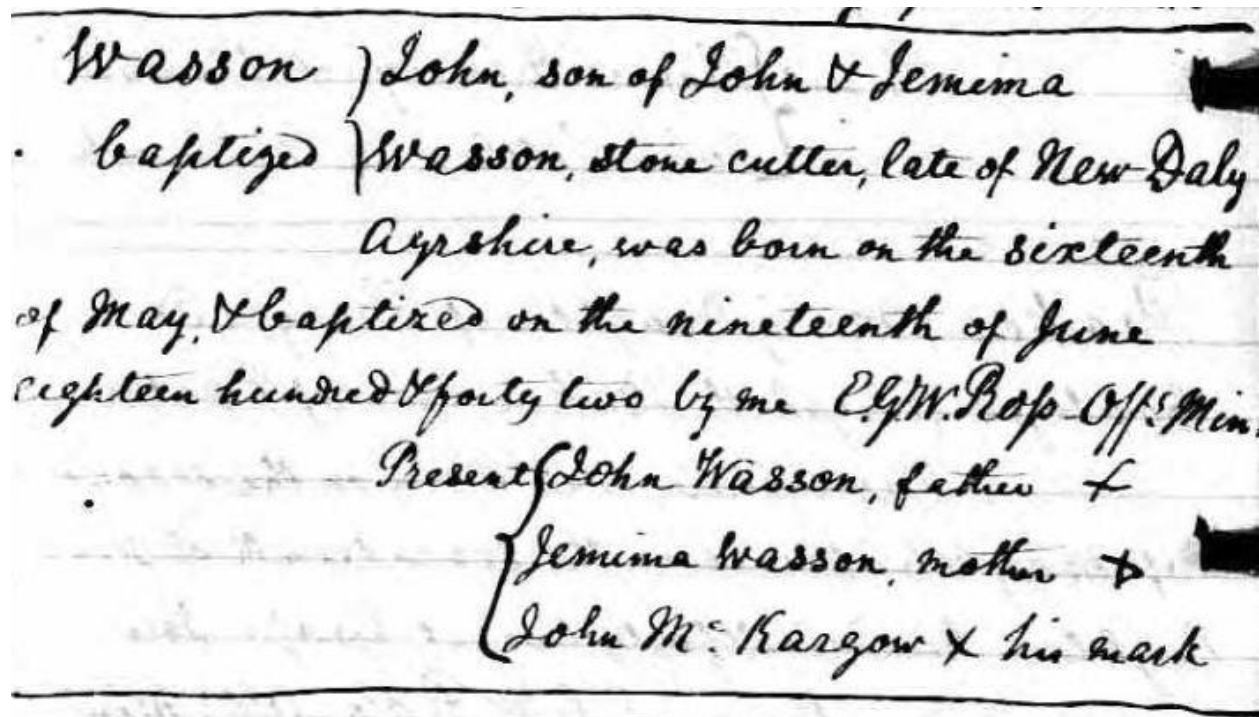 Wasson } John, son of John & Jemima
baptized } Wasson, stone cutter, late of New Daly
Ayrshire, was born on the sixteenth
of May, & baptized on the nineteenth of June
eighteen hundred & forty two by me E.G.W. Ross Offg Min.
Present { John Wasson, father +
Jemima Wasson, mother +
John Mc Kargow x his mark